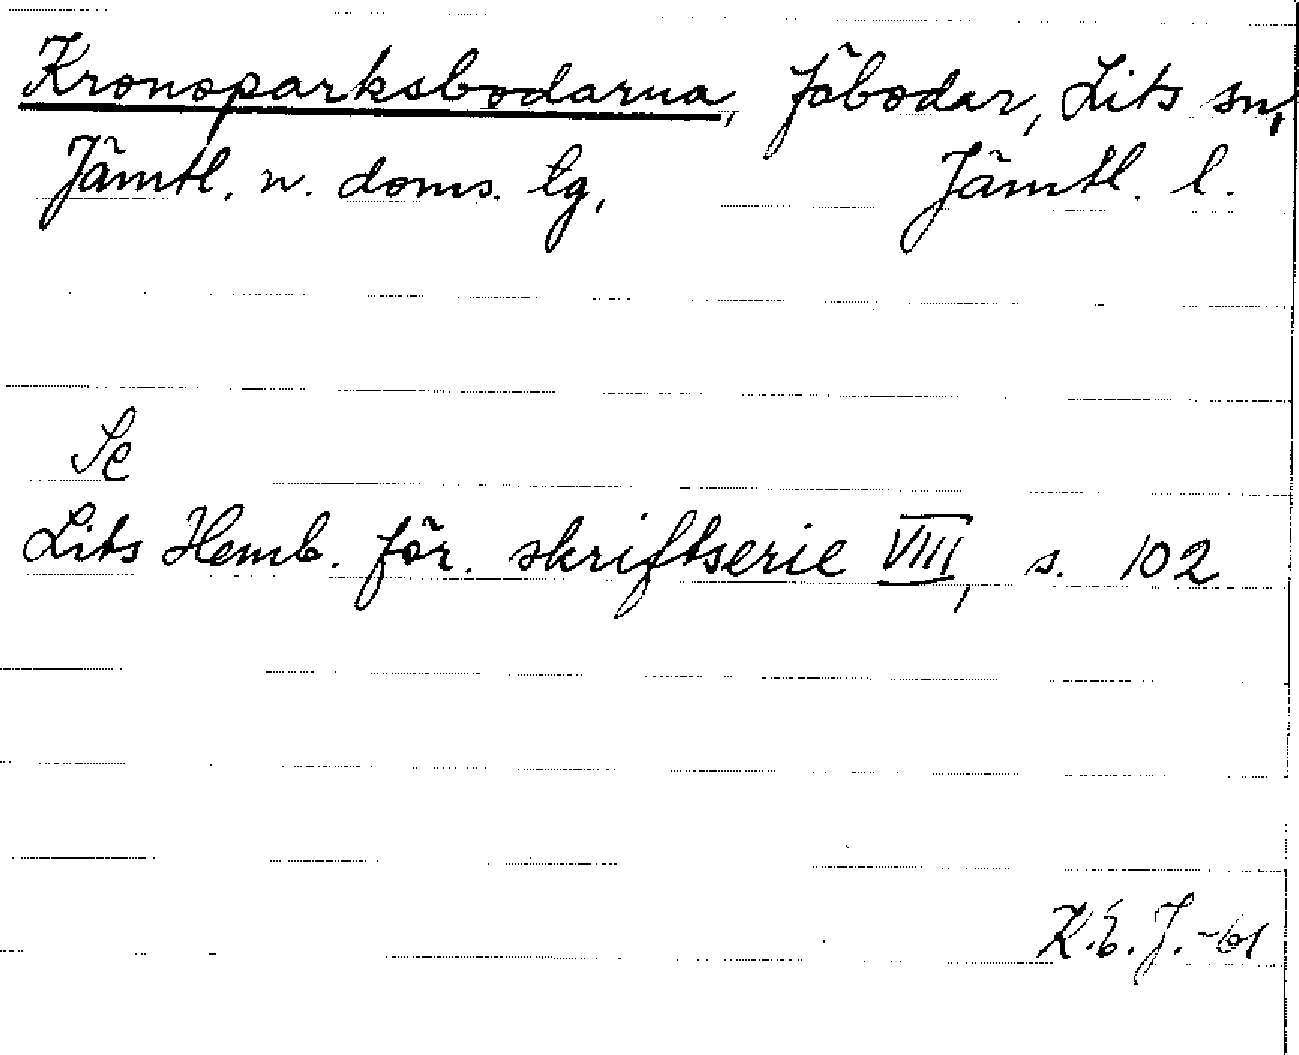 Kronoparksbodarna, fäbodar, Lits sn,
Jämtl. n. doms. lg, Jämtl. l.
Se
Lits Hemb. för. skriftserie VIII, s. 102
K.E.J. -61